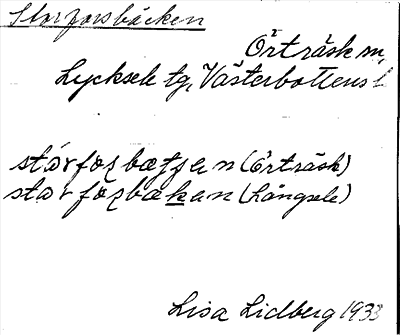 Storforsbäcken
Örträsk sn,
Lycksele tg, Västerbottens l
stárfoʂbætʂen (Örträsk)
star foʂbækan (Långsele)
Lisa Lidberg 1933